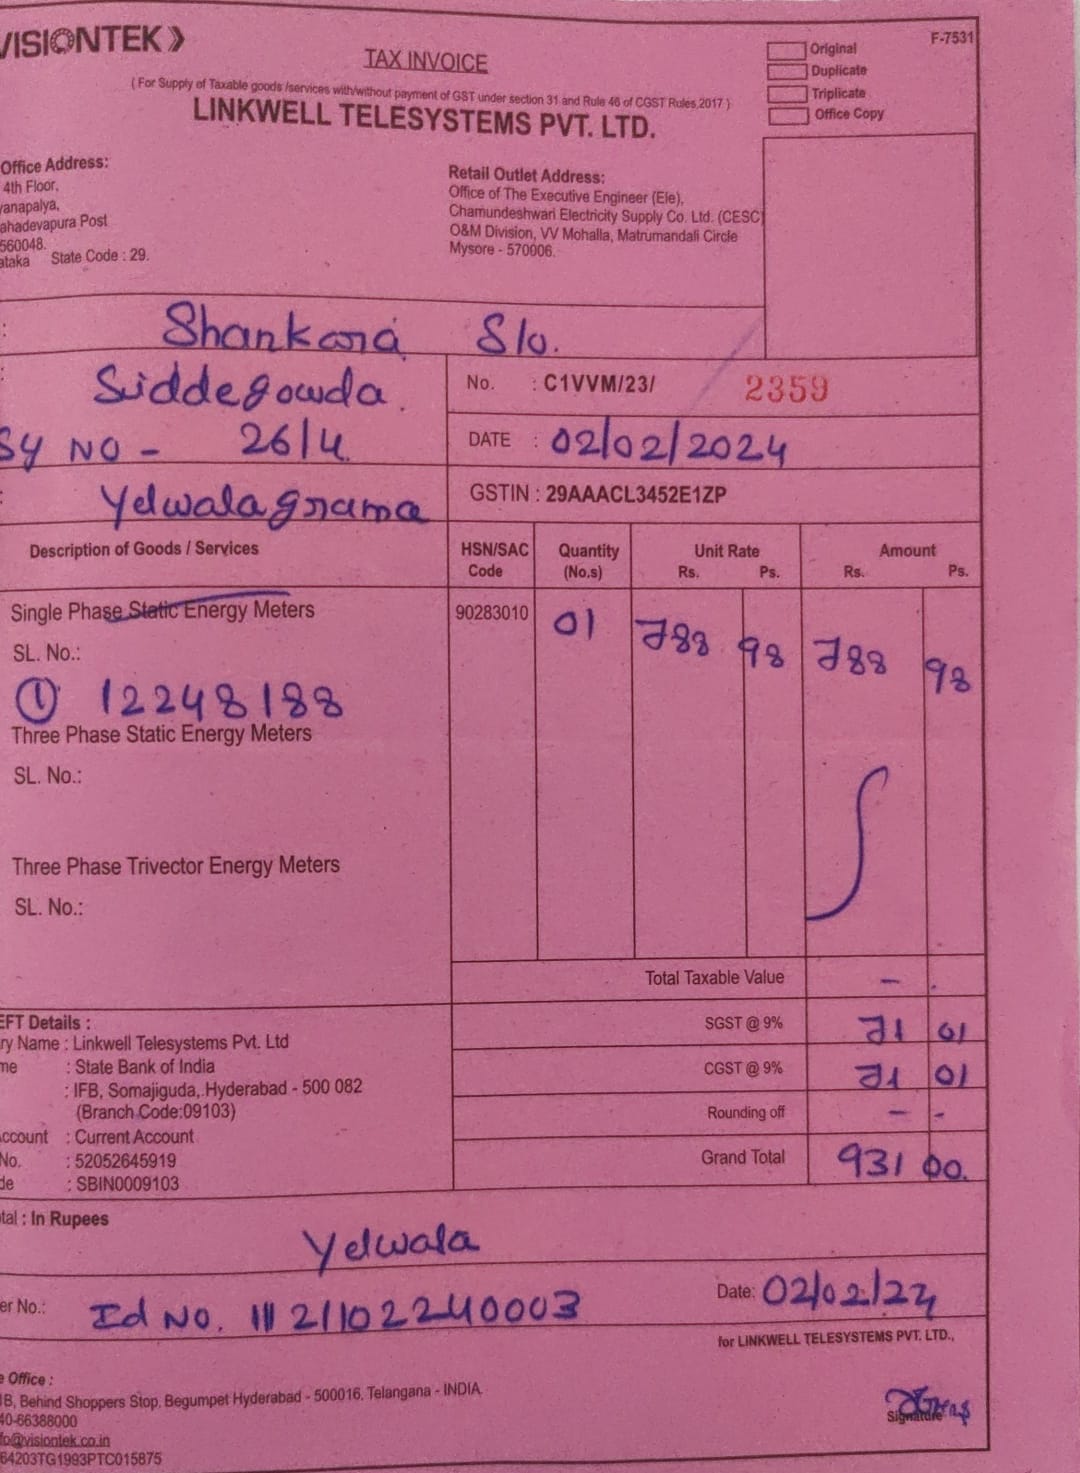 VISIONTEK
TAX INVOICE
F-7531
Original
Duplicate
Triplicate
Office Copy
( For Supply of Taxable goods /services with/without payment of GST under section 31 and Rule 46 of CGST Rules,2017 )
LINKWELL TELESYSTEMS PVT. LTD.
Office Address:
4th Floor,
yanapalya,
ahadevapura Post
560048.
ataka State Code : 29.
Retail Outlet Address:
Office of The Executive Engineer (Ele),
Chamundeshwari Electricity Supply Co. Ltd. (CESC)
O&M Division, VV Mohalla, Matrumandali Circle
Mysore - 570006.
: Shankara S/o.
: Siddegowda.
No. : C1VVM/23/ 2359
Sy NO - 26/4.
DATE : 02/02/2024
: Yelwala grama
GSTIN : 29AAACL3452E1ZP
Description of Goods / Services HSN/SAC Code Quantity (No.s) Unit Rate Rs. Ps. Amount Rs. Ps.
Single Phase Static Energy Meters 90283010 01 788 98 788 98
SL. No.:
① 12248188
Three Phase Static Energy Meters
SL. No.:
Three Phase Trivector Energy Meters
SL. No.:
Total Taxable Value - .
SGST @ 9% 71 01
CGST @ 9% 71 01
Rounding off - -
Grand Total 931 00.
EFT Details :
ry Name : Linkwell Telesystems Pvt. Ltd
me : State Bank of India
: IFB, Somajiguda, Hyderabad - 500 082
(Branch Code:09103)
Account : Current Account
No. : 52052645919
de : SBIN0009103
tal : In Rupees
Yelwala
er No.: Id No. 111 21102240003
Date: 02/02/24
for LINKWELL TELESYSTEMS PVT. LTD.,
e Office :
1B, Behind Shoppers Stop, Begumpet Hyderabad - 500016, Telangana - INDIA.
40-66388000
fo@visiontek.co.in
64203TG1993PTC015875
Signature